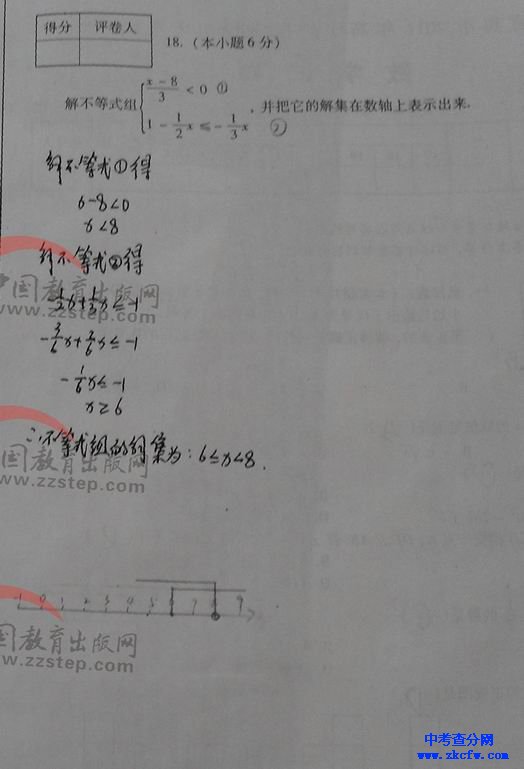 得分 评卷人
18.（本小题6分）
解不等式组 { (x-8)/3 < 0 ① , 并把它的解集在数轴上表示出来.
1 - 1/2 x ≤ - 1/3 x ②
解不等式①得
x-8<0
x<8
解不等式②得
-1/2x+1/3x≤-1
-3/6x+2/6x≤-1
-1/6x≤-1
x≥6
∴不等式组的解集为:6≤x<8.
-1 0 1 2 3 4 5 6 7 8 9
中国教育出版网
www.zzstep.com
国教育出版网
www.zzstep.com
国教育出版网
www.zzstep.com
中考查分网
www.zkcfw.com